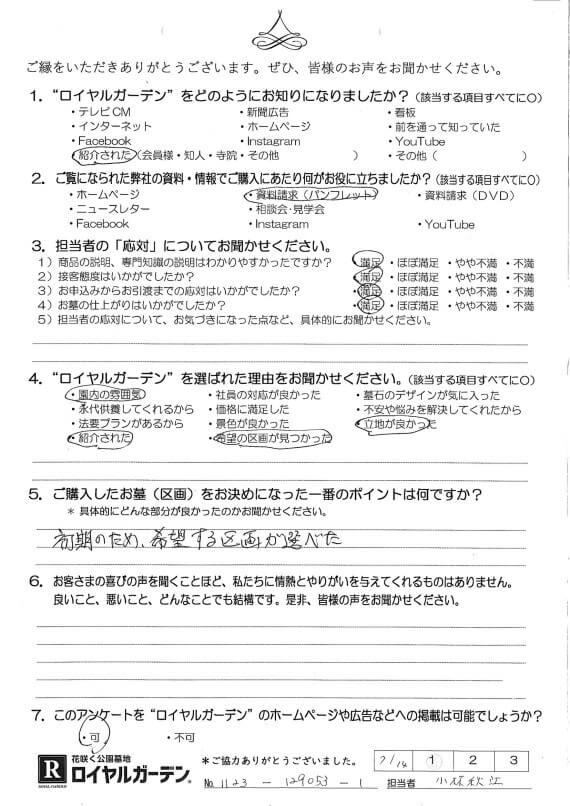 ご縁をいただきありがとうございます。ぜひ、皆様のお声をお聞かせください。
1. “ロイヤルガーデン” をどのようにお知りになりましたか？（該当する項目すべてに○）
・テレビCM ・新聞広告 ・看板
・インターネット ・ホームページ ・前を通って知っていた
・Facebook ・Instagram ・YouTube
・紹介された（会員様・知人・寺院・その他 ） ・その他（ ）
2. ご覧になられた弊社の資料・情報でご購入にあたり何がお役に立ちましたか？（該当する項目すべてに○）
・ホームページ ・資料請求（パンフレット） ・資料請求（DVD）
・ニュースレター ・相談会・見学会
・Facebook ・Instagram ・YouTube
3. 担当者の「応対」についてお聞かせください。
1）商品の説明、専門知識の説明はわかりやすかったですか？ 満足 ・ほぼ満足 ・やや不満 ・不満
2）接客態度はいかがでしたか？ 満足 ・ほぼ満足 ・やや不満 ・不満
3）お申込みからお引渡までの応対はいかがでしたか？ 満足 ・ほぼ満足 ・やや不満 ・不満
4）お墓の仕上がりはいかがでしたか？ 満足 ・ほぼ満足 ・やや不満 ・不満
5）担当者の応対について、お気づきになった点など、具体的にお聞かせください。
4. “ロイヤルガーデン” を選ばれた理由をお聞かせください。（該当する項目すべてに○）
・園内の雰囲気 ・社員の対応が良かった ・墓石のデザインが気に入った
・永代供養してくれるから ・価格に満足した ・不安や悩みを解決してくれたから
・法要プランがあるから ・景色が良かった ・立地が良かった
・紹介された ・希望の区画が見つかった
5. ご購入したお墓（区画）をお決めになった一番のポイントは何ですか？
＊具体的にどんな部分が良かったのかお聞かせください。
初期のため、希望する区画が選べた
6. お客さまの喜びの声を聞くことほど、私たちに情熱とやりがいを与えてくれるものはありません。
良いこと、悪いこと、どんなことでも結構です。是非、皆様の声をお聞かせください。
7. このアンケートを “ロイヤルガーデン” のホームページや広告などへの掲載は可能でしょうか？
・可 ・不可
R
ROYAL GARDEN
花咲く公園墓地
ロイヤルガーデン®
＊ご協力ありがとうございました。 7/14 1 2 3
No. 1123 - 129053 - 1 担当者 小林秋江